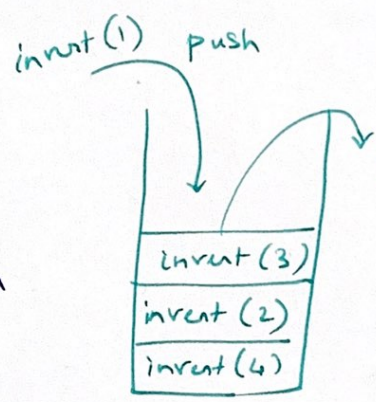 invent (1) push
invent (3)
invent (2)
invent (4)